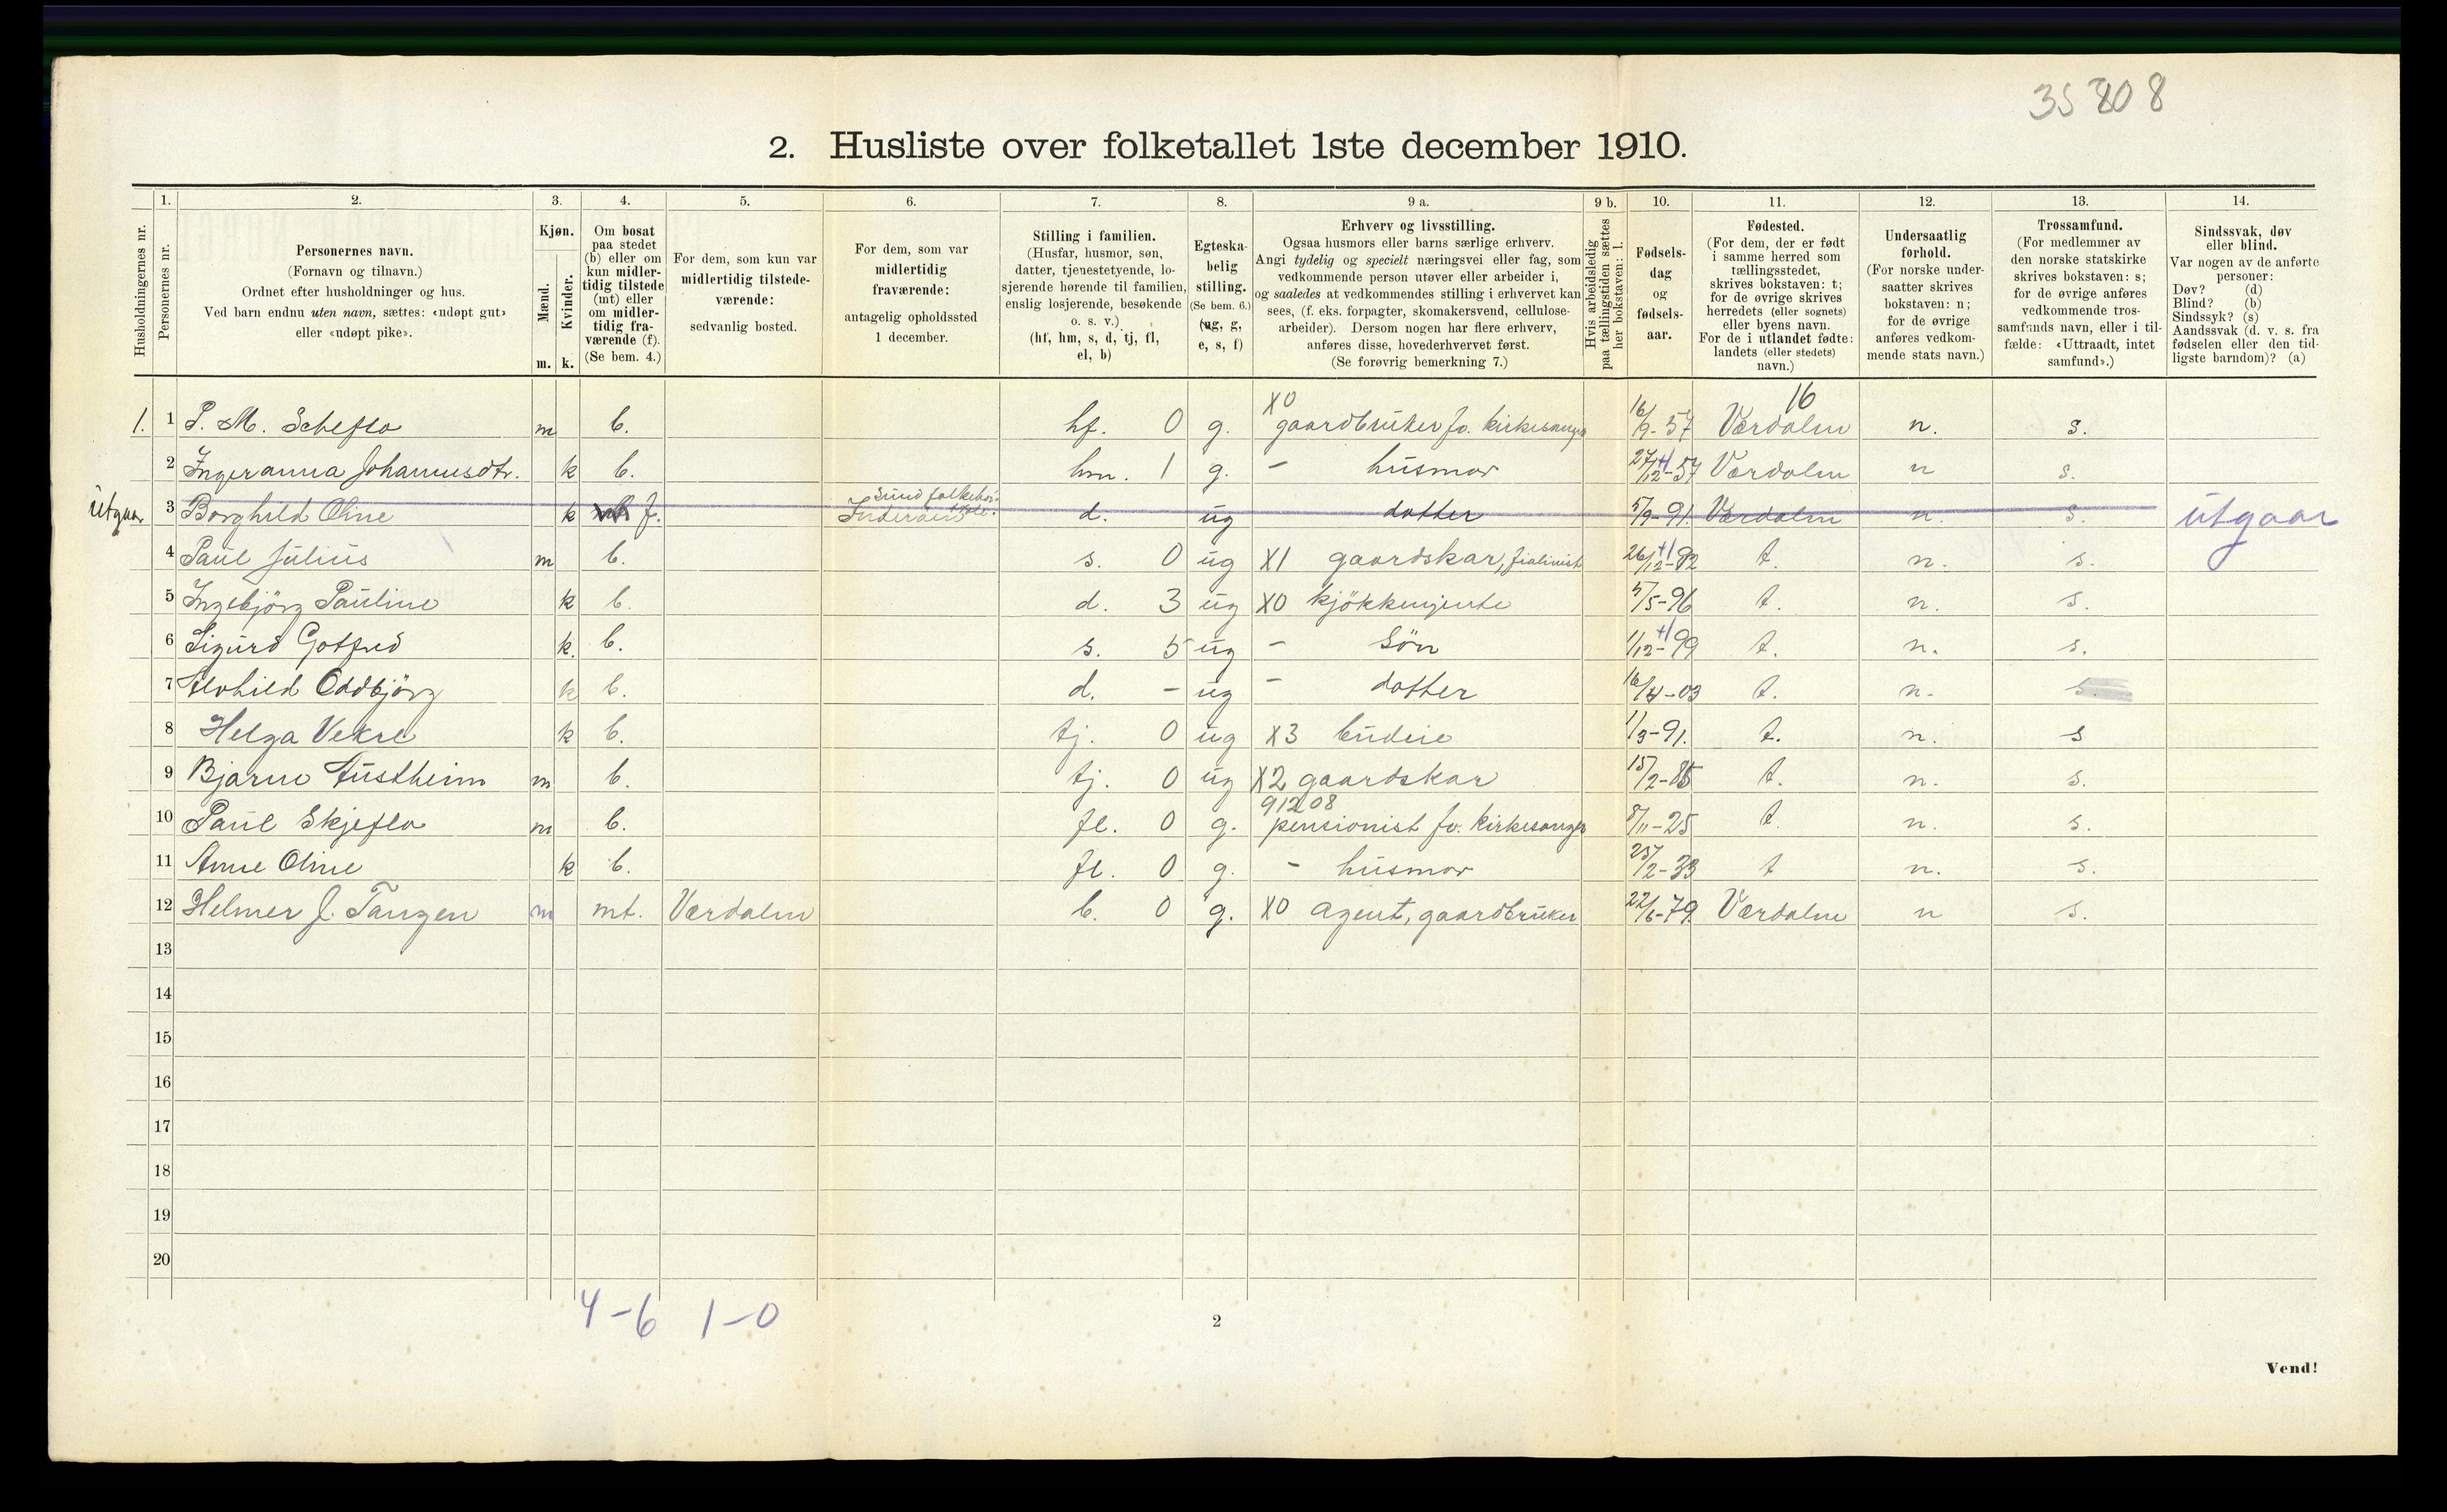 35808
2. Husliste over folketallet 1ste december 1910.
Husholdningernes nr.
1.
Personernes nr.
2.
Personernes navn.
(Fornavn og tilnavn.)
Ordnet efter husholdninger og hus.
Ved barn endnu uten navn, sættes: «udøpt gut»
eller «udøpt pike».
3.
Kjøn.
Mænd.
Kvinder.
m. k.
4.
Om bosat
paa stedet
(b) eller om
kun midler-
tidig tilstede
(mt) eller
om midler-
tidig fra-
værende (f).
(Se bem. 4.)
5.
For dem, som kun var
midlertidig tilstede-
værende:
sedvanlig bosted.
6.
For dem, som var
midlertidig
fraværende:
antagelig opholdssted
1 december.
7.
Stilling i familien.
(Husfar, husmor, søn,
datter, tjenestetyende, lo-
sjerende hørende til familien,
enslig losjerende, besøkende
o. s. v.)
(hf, hm, s, d, tj, fl,
el, b)
8.
Egteska-
belig
stilling.
(Se bem. 6.)
(ug, g,
e, s, f)
9 a.
Erhverv og livsstilling.
Ogsaa husmors eller barns særlige erhverv.
Angi tydelig og specielt næringsvei eller fag, som
vedkommende person utøver eller arbeider i,
og saaledes at vedkommendes stilling i erhvervet kan
sees, (f. eks. forpagter, skomakersvend, cellulose-
arbeider). Dersom nogen har flere erhverv,
anføres disse, hovederhvervet først.
(Se forøvrig bemerkning 7.)
9 b.
Hvis arbeidsledig
paa tællingstiden sættes
her bokstaven: l.
10.
Fødsels-
dag
og
fødsels-
aar.
11.
Fødested.
(For dem, der er født
i samme herred som
tællingsstedet,
skrives bokstaven: t;
for de øvrige skrives
herredets (eller sognets)
eller byens navn.
For de i utlandet fødte:
landets (eller stedets)
navn.)
12.
Undersaatlig
forhold.
(For norske under-
saatter skrives
bokstaven: n;
for de øvrige
anføres vedkom-
mende stats navn.)
13.
Trossamfund.
(For medlemmer av
den norske statskirke
skrives bokstaven: s;
for de øvrige anføres
vedkommende tros-
samfunds navn, eller i til-
fælde: «Uttraadt, intet
samfund».)
14.
Sindssvak, døv
eller blind.
Var nogen av de anførte
personer:
Døv? (d)
Blind? (b)
Sindssyk? (s)
Aandssvak (d. v. s. fra
fødselen eller den tid-
ligste barndom)? (a)
X0 16
1. 1 P. M. Scheflo m b. hf. 0 g. gaardbruker fv. kirkesanger 16/9-57 Værdalen n. s.
2 Ingeranna Johannesdtr. k b. hm. 1 g. - husmor 27/12-57 Værdalen n s.
utgaar 3 Borghild Oline k f. Sund folkehøi- Inderøen d. ug datter 5/9-91. Værdalen n. s. utgaar
4 Paul Julius m b. s. 0 ug X1 gaardskar, 26/12-92 t. n. s.
5 Ingebjörg Pauline k b. d. 3 ug X0 kjökkenjente 5/5-96 t. n. s.
6 Sigurd Gotfred k. b. s. 5 ug - Sön 1/12-99 t. n. s.
7 Alvhild Oddbjörg k b. d. - ug - datter 16/4-03 t. n. s.
8 Helga Vekre k b. tj. 0 ug X3 budeie 1/3-91. t. n. s
9 Bjarne Austheim m b. tj. 0 ug X2 gaardskar 15/2-85 t. n. s.
91208
10 Paul Skjeflo m b. fl. 0 g. pensionist fv. kirkesanger 8/11-25 t. n. s.
11 Anne Oline k b. fl. 0 g. - husmor 25/2-33 t n. s.
12 Helmer J. Tangen m mt. Værdalen b. 0 g. X0 agent, gaardbruker 22/6-79. Værdalen n s.
13
14
15
16
17
18
19
20
4-6 1-0
2
Vend!